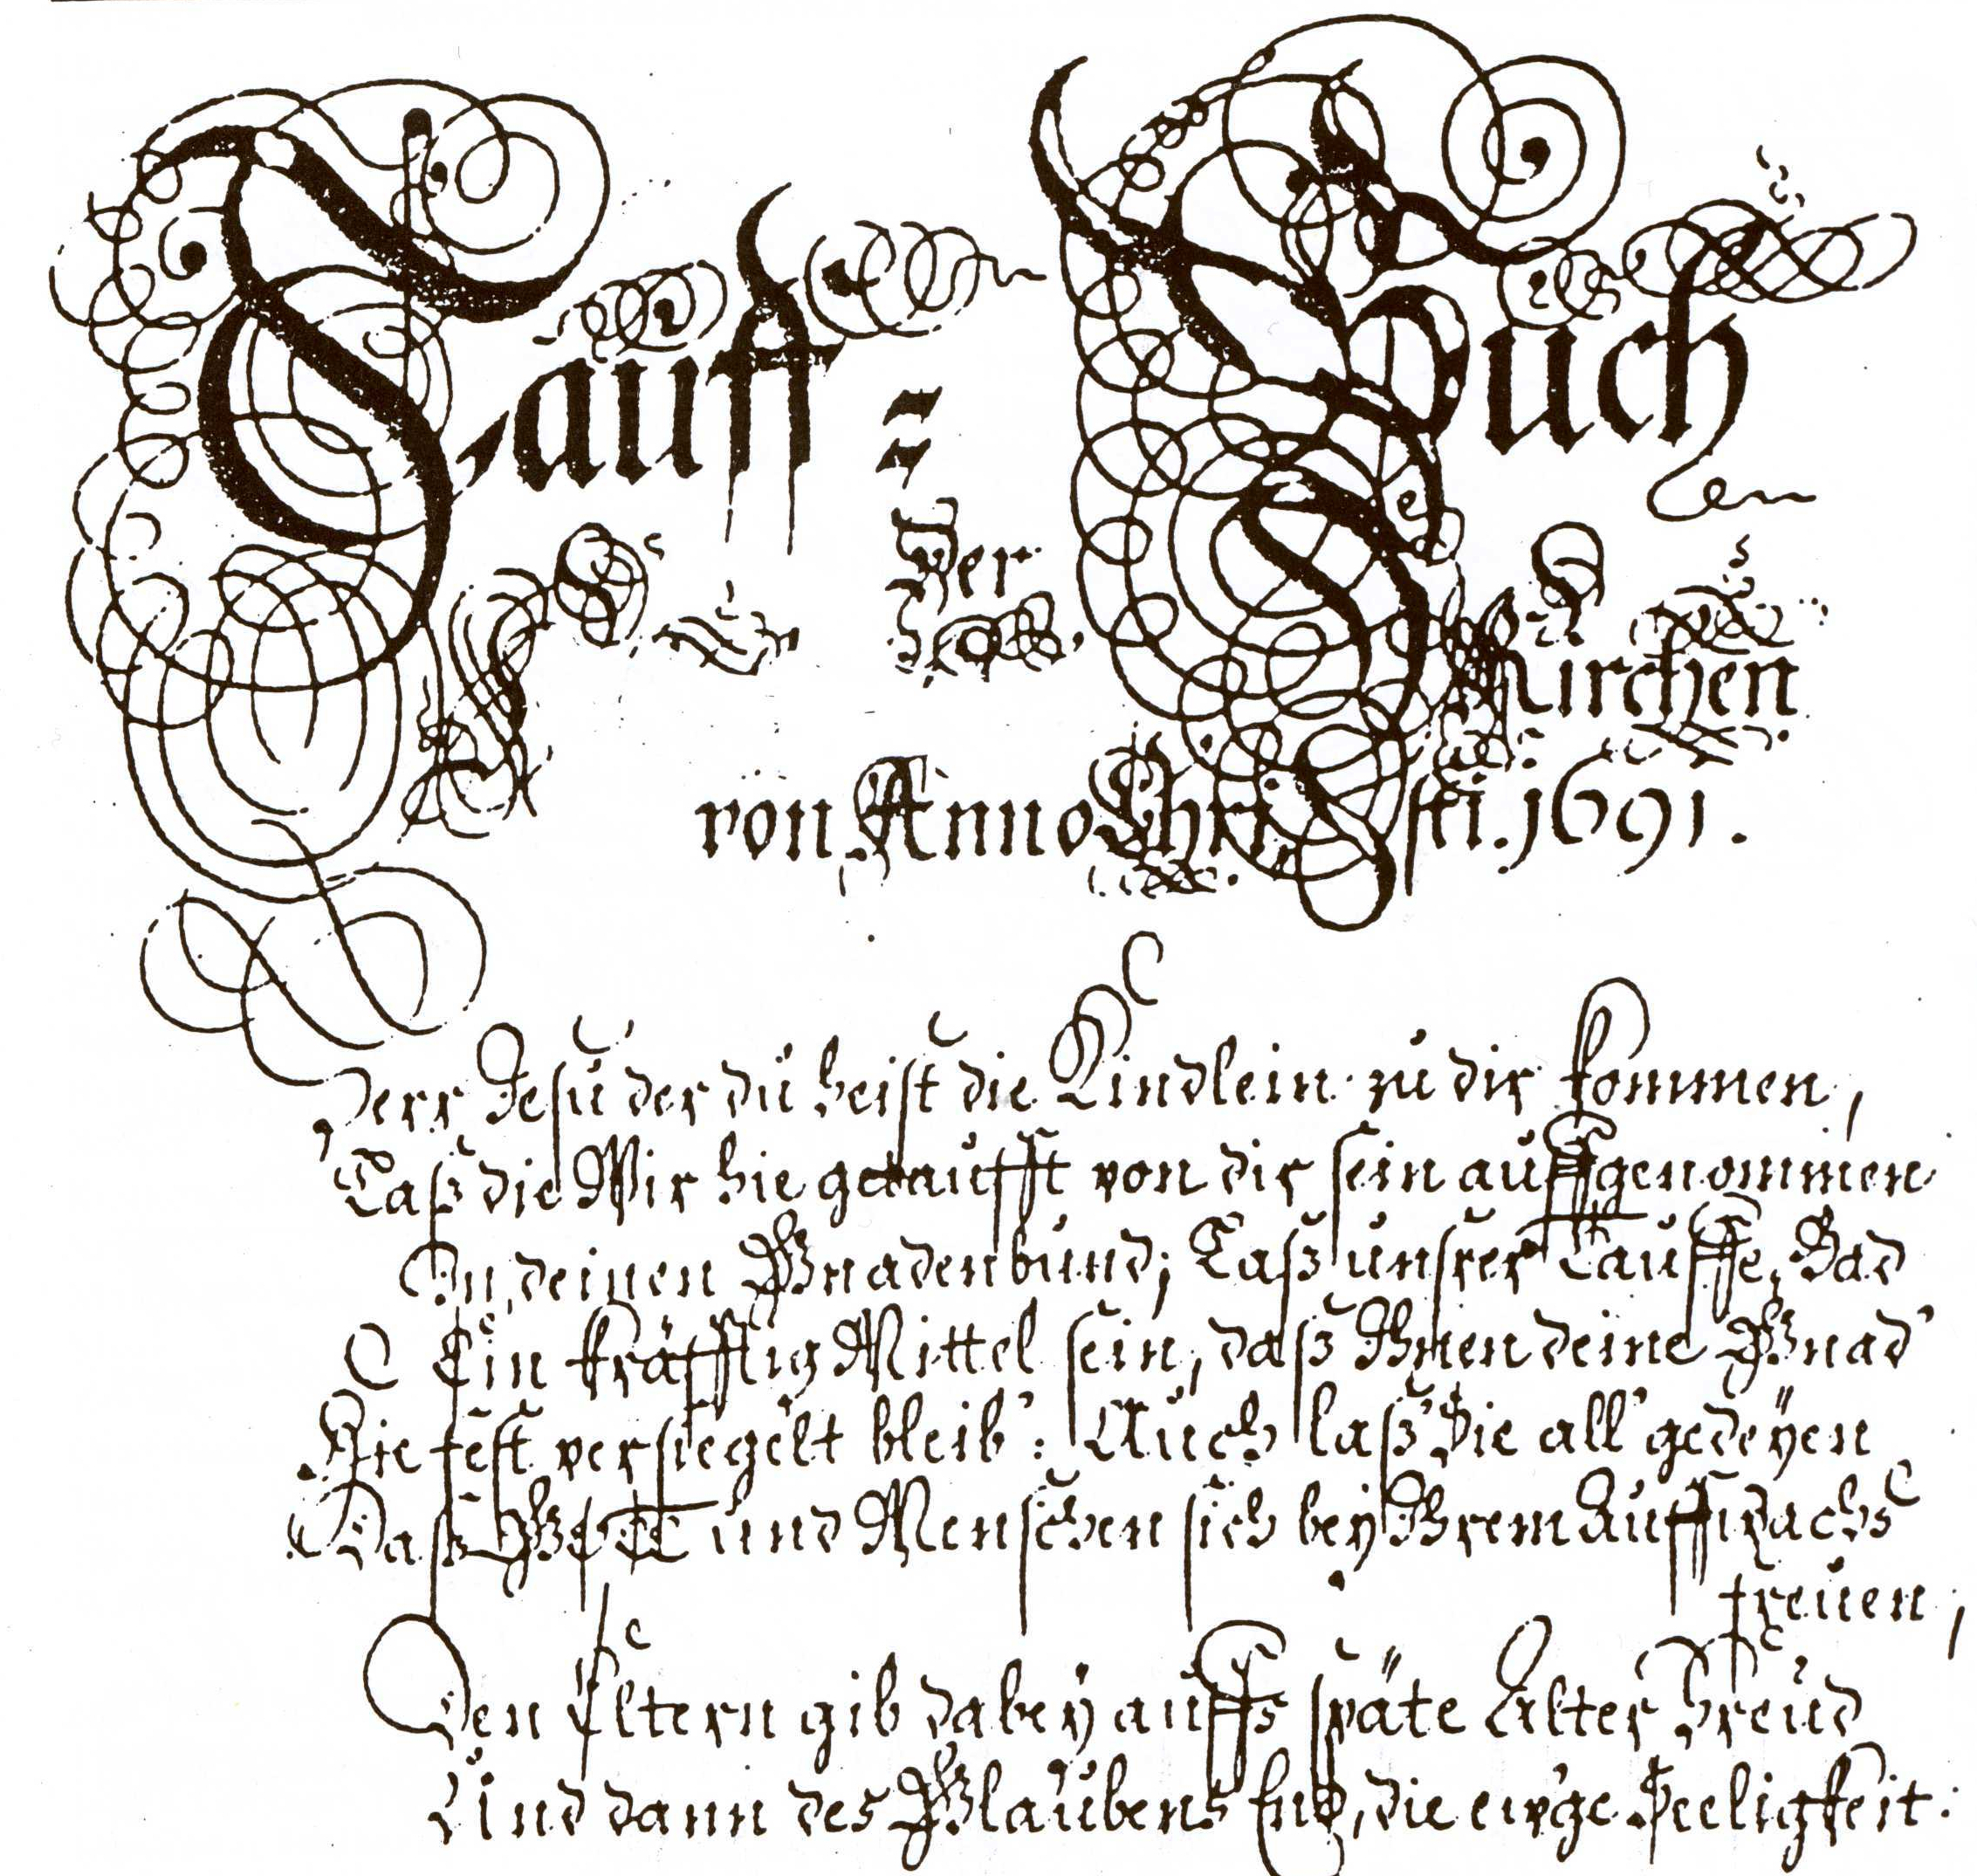 Tauff = Buch
Der
Kirchen
von Anno Christi. 1691.
Herr Jesu der du heist die Kindlein zu dir kommen,
Laß die Wir hie getaufft von dir sein auffgenommen
In deinen Gnadenbund; Laß unsrer Tauffe Bad
Ein kräfftig Mittel sein, daß Ihnen deine Gnad'
Hie fest versiegelt bleib': Auch laß Sie all' gedeÿen
Daß GOTT und Menschen sich beÿ Ihrem Auffwachs
freuen,
Den Eltern gib dabeÿ auffs späte Alter Freud
Und dann des Glaubens End, die ew'ge Seeligkeit: